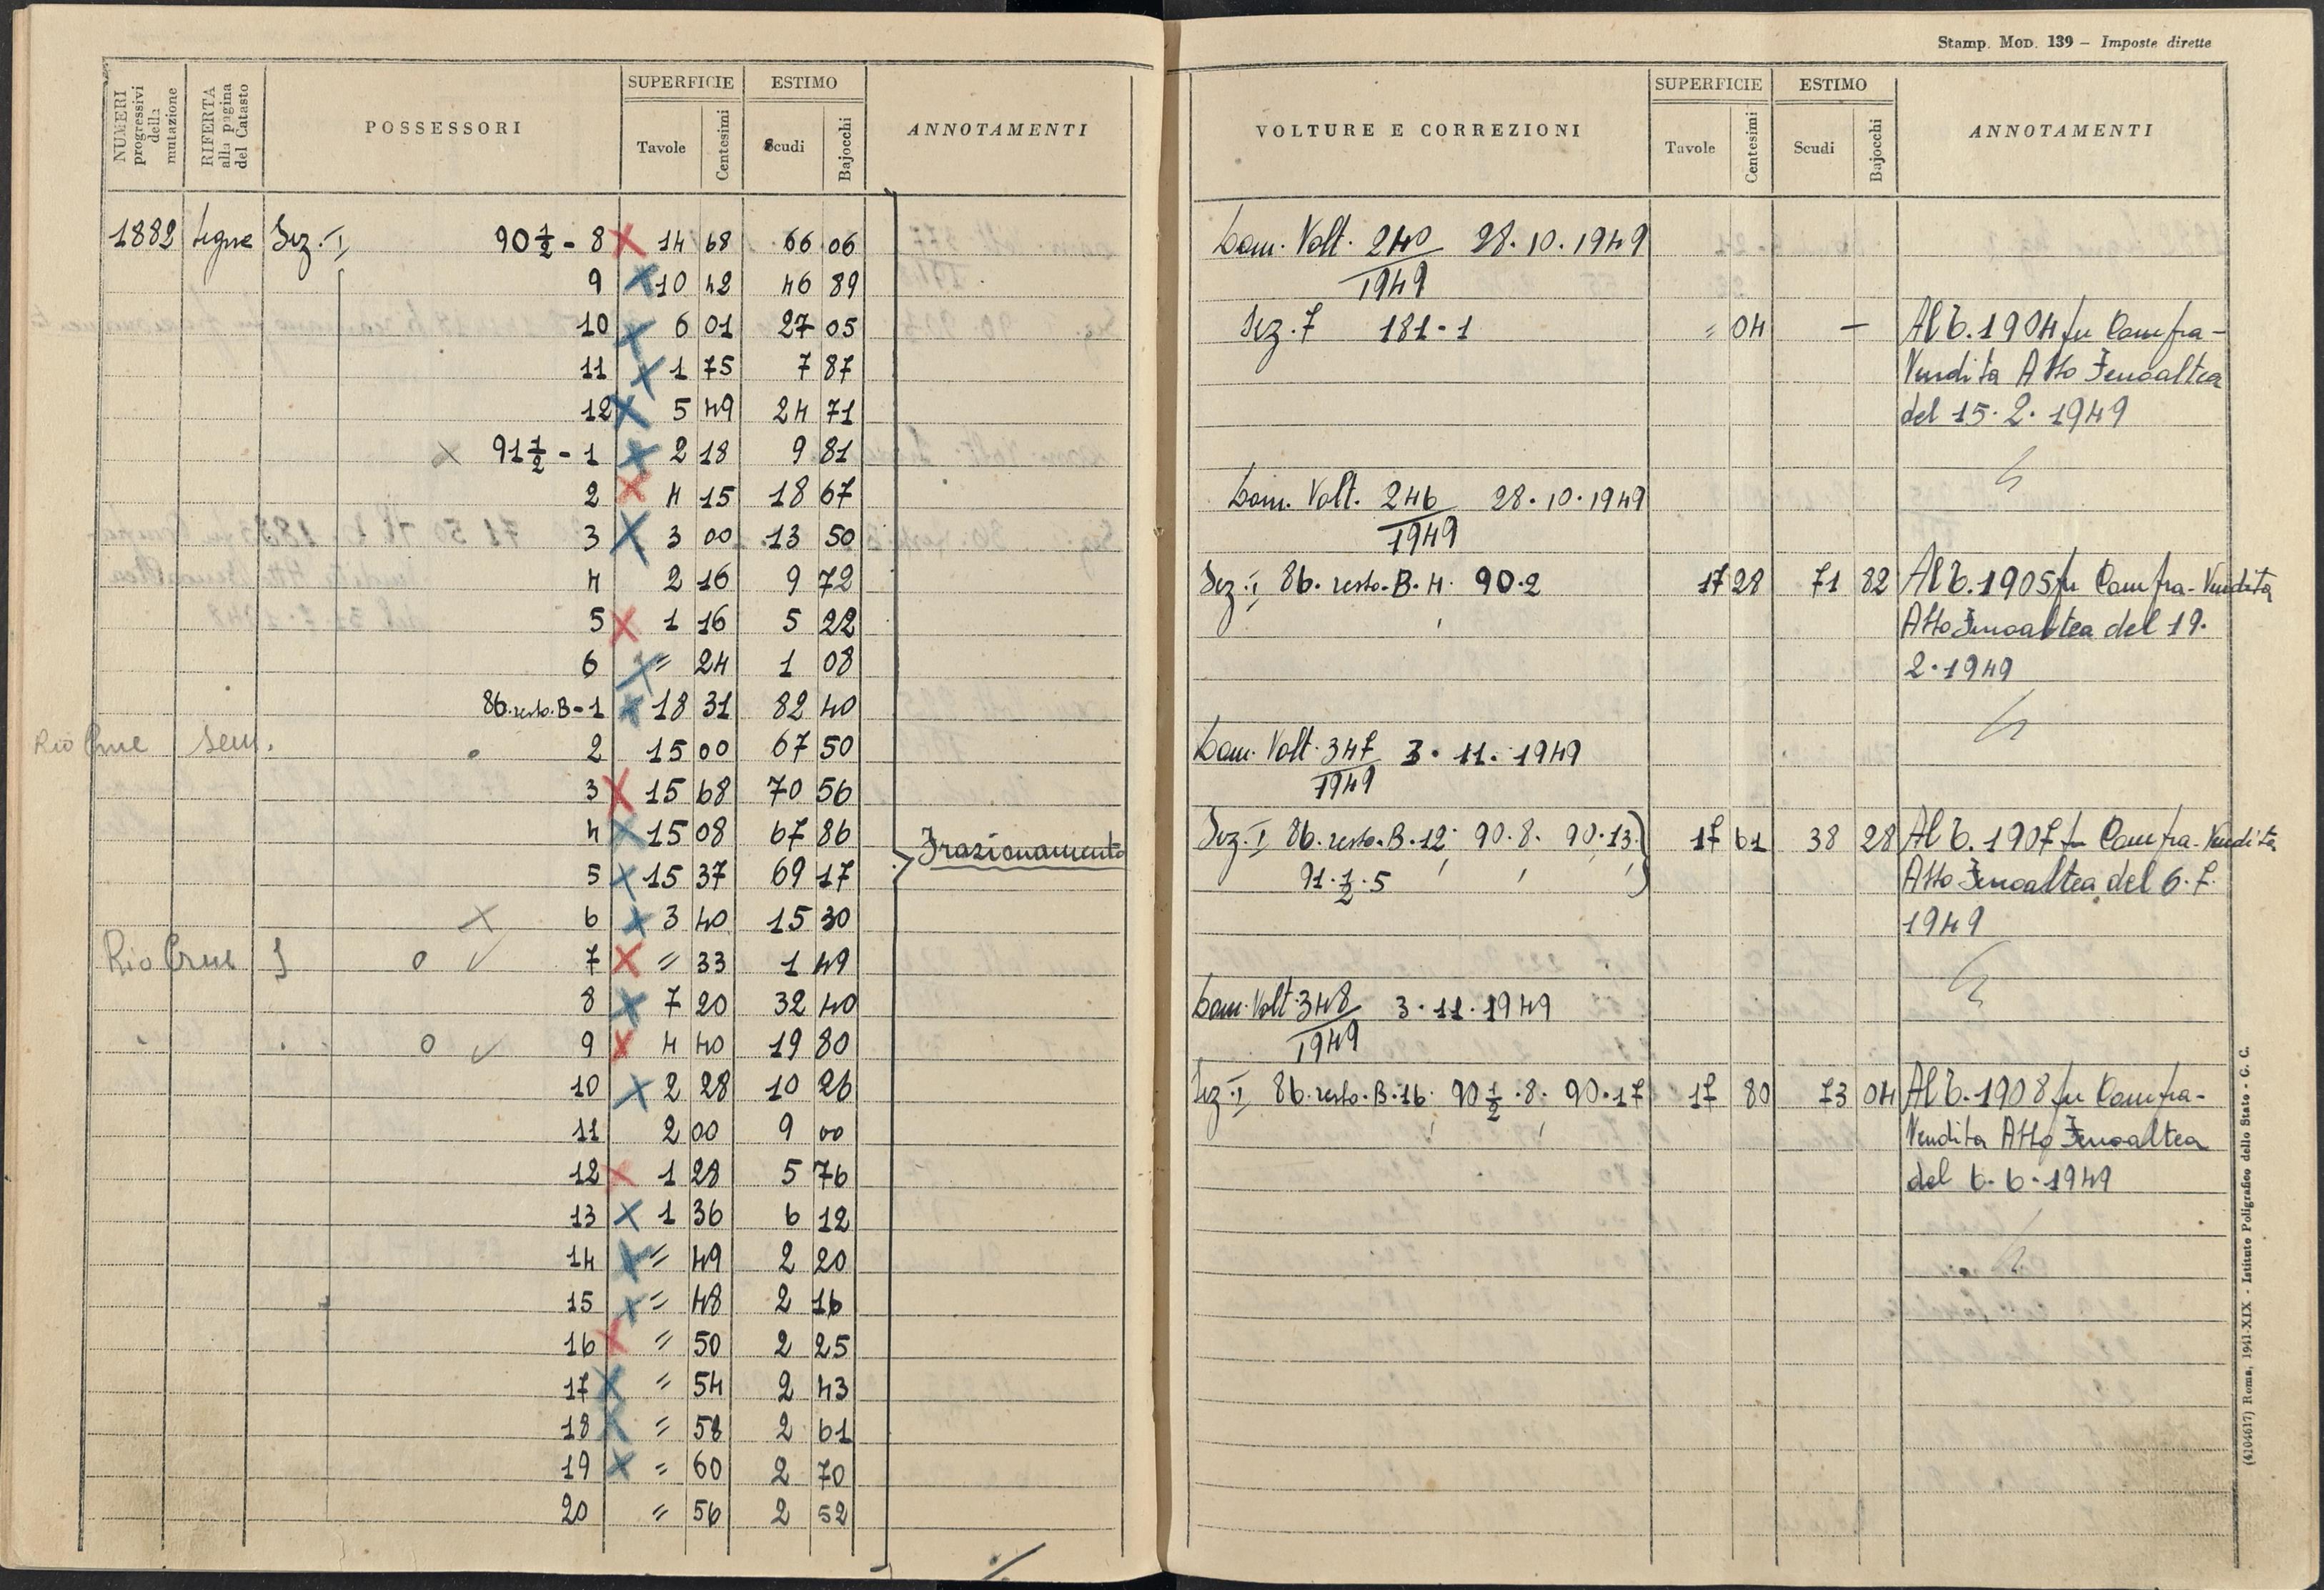 NUMERI progressivi della mutazione | RIFERTA alla pagina del Catasto | POSSESSORI | SUPERFICIE Tavole Centesimi | ESTIMO Scudi Bajocchi | ANNOTAMENTI
1882 segue Sez. I 90 1/2 - 8 14 68 66 06
9 10 42 46 89
10 6 01 27 05
11 1 75 7 87
12 5 49 24 71
91 1/2 - 1 2 18 9 81
2 4 15 18 67
3 3 00 13 50
4 2 16 9 72
5 1 16 5 22
6 = 24 1 08
86. resto. B - 1 18 31 82 40
Rio sem. 2 15 00 67 50
3 15 68 70 56
4 15 08 67 86
Frazionamento
5 15 37 69 17
6 3 40 15 30
Rio 7 = 33 1 49
8 7 20 32 40
9 4 40 19 80
10 2 28 10 26
11 2 00 9 00
12 1 28 5 76
13 1 36 6 12
14 = 49 2 20
15 = 48 2 16
16 = 50 2 25
17 = 54 2 43
18 = 58 2 61
19 = 60 2 70
20 = 56 2 52
Stamp. Mod. 139 – Imposte dirette
VOLTURE E CORREZIONI | SUPERFICIE Tavole Centesimi | ESTIMO Scudi Bajocchi | ANNOTAMENTI
Dom. Volt. 240/1949 28.10.1949
Sez. 7 181-1 = 04 — Al b. 1904 per Compra-
Vendita Atto Fenoaltea
del 15.2.1949
Dom. Volt. 246/1949 28.10.1949
Sez. I 86. resto. B. 4. 90.2 17 28 71 82 Al b. 1905 per Compra-Vendita
Atto Fenoaltea del 19.
2.1949
Dom. Volt. 347/1949 3.11.1949
Sez. I 86. resto. B. 12. 90.8. 90.13. 17 61 38 28 Al b. 1907 per Compra-Vendita
91.1/2.5 Atto Fenoaltea del 6.7.
1949
Dom. Volt. 348/1949 3.11.1949
Sez. I 86. resto. B. 16. 90 1/2 .8. 90.17 17 80 73 04 Al b. 1908 per Compra-
Vendita Atto Fenoaltea
del 6.6.1949
(4104617) Roma, 1941-XIX - Istituto Poligrafico dello Stato - G. C.